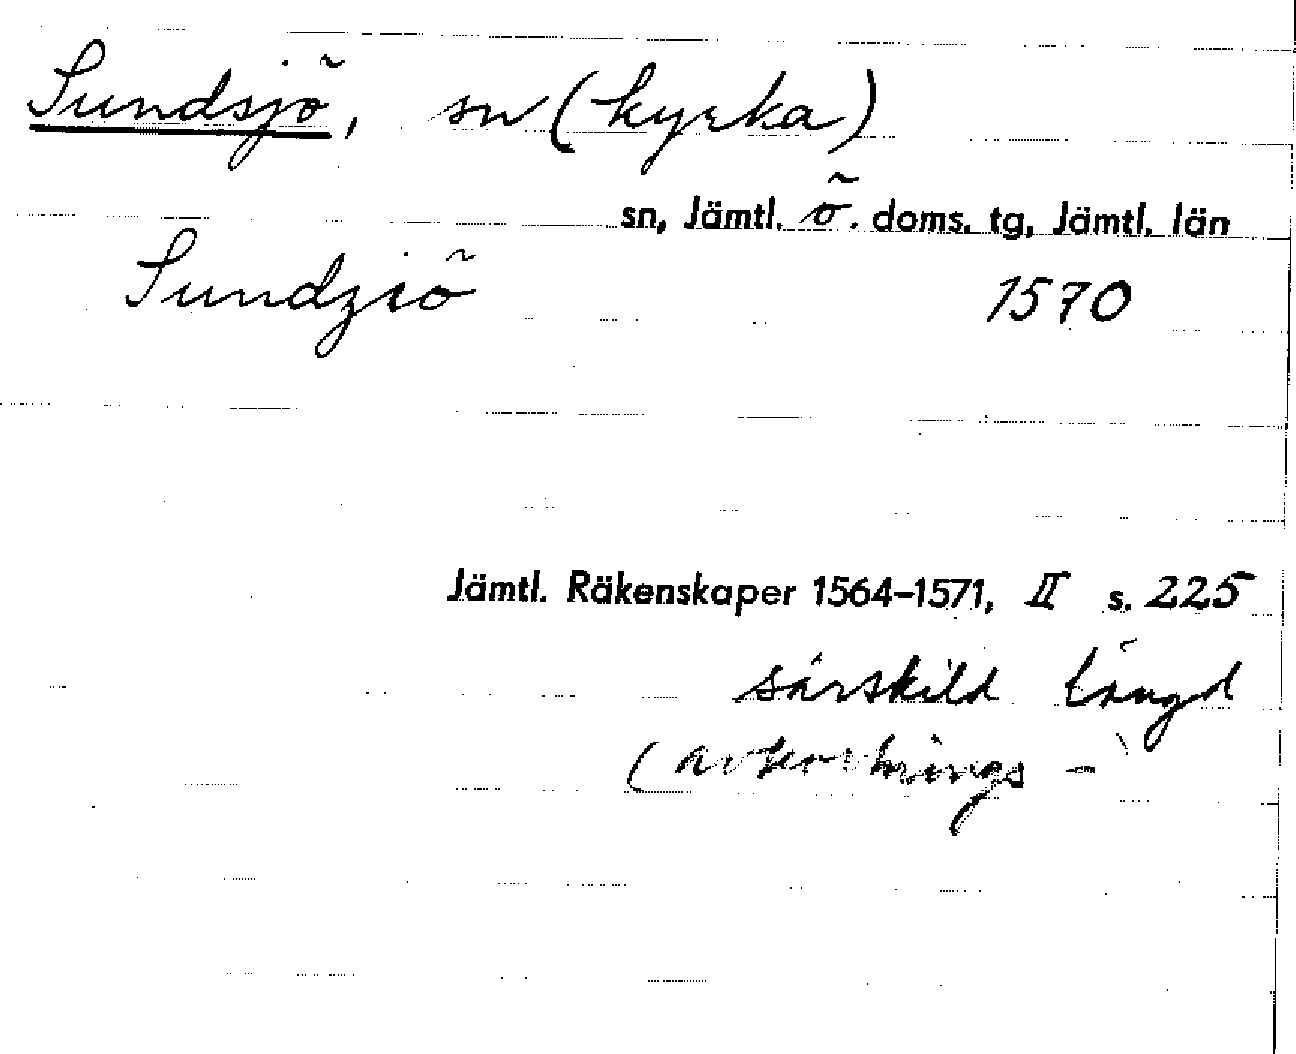 Sundsjö, sn (kyrka)
sn, Jämtl. ö. doms. tg, Jämtl. län
Sundziö 1570
Jämtl. Räkenskaper 1564–1571, II s. 225
särskild längd
(avkortnings-)